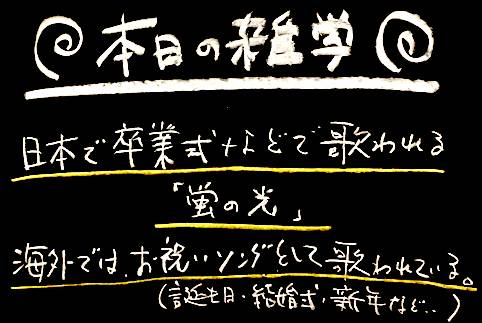 本日の雑学
日本で卒業式などで歌われる
「蛍の光」
海外では、お祝いソングとして歌われている。
(誕生日・結婚式・新年など‥)